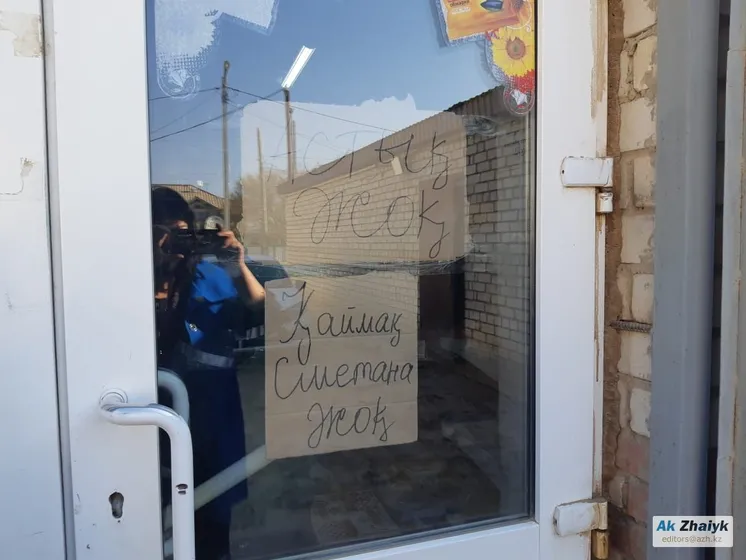 АСТЫҚ
ЖОҚ
Қаймақ
Сметана
жоқ
Ak Zhaiyk
editors@azh.kz